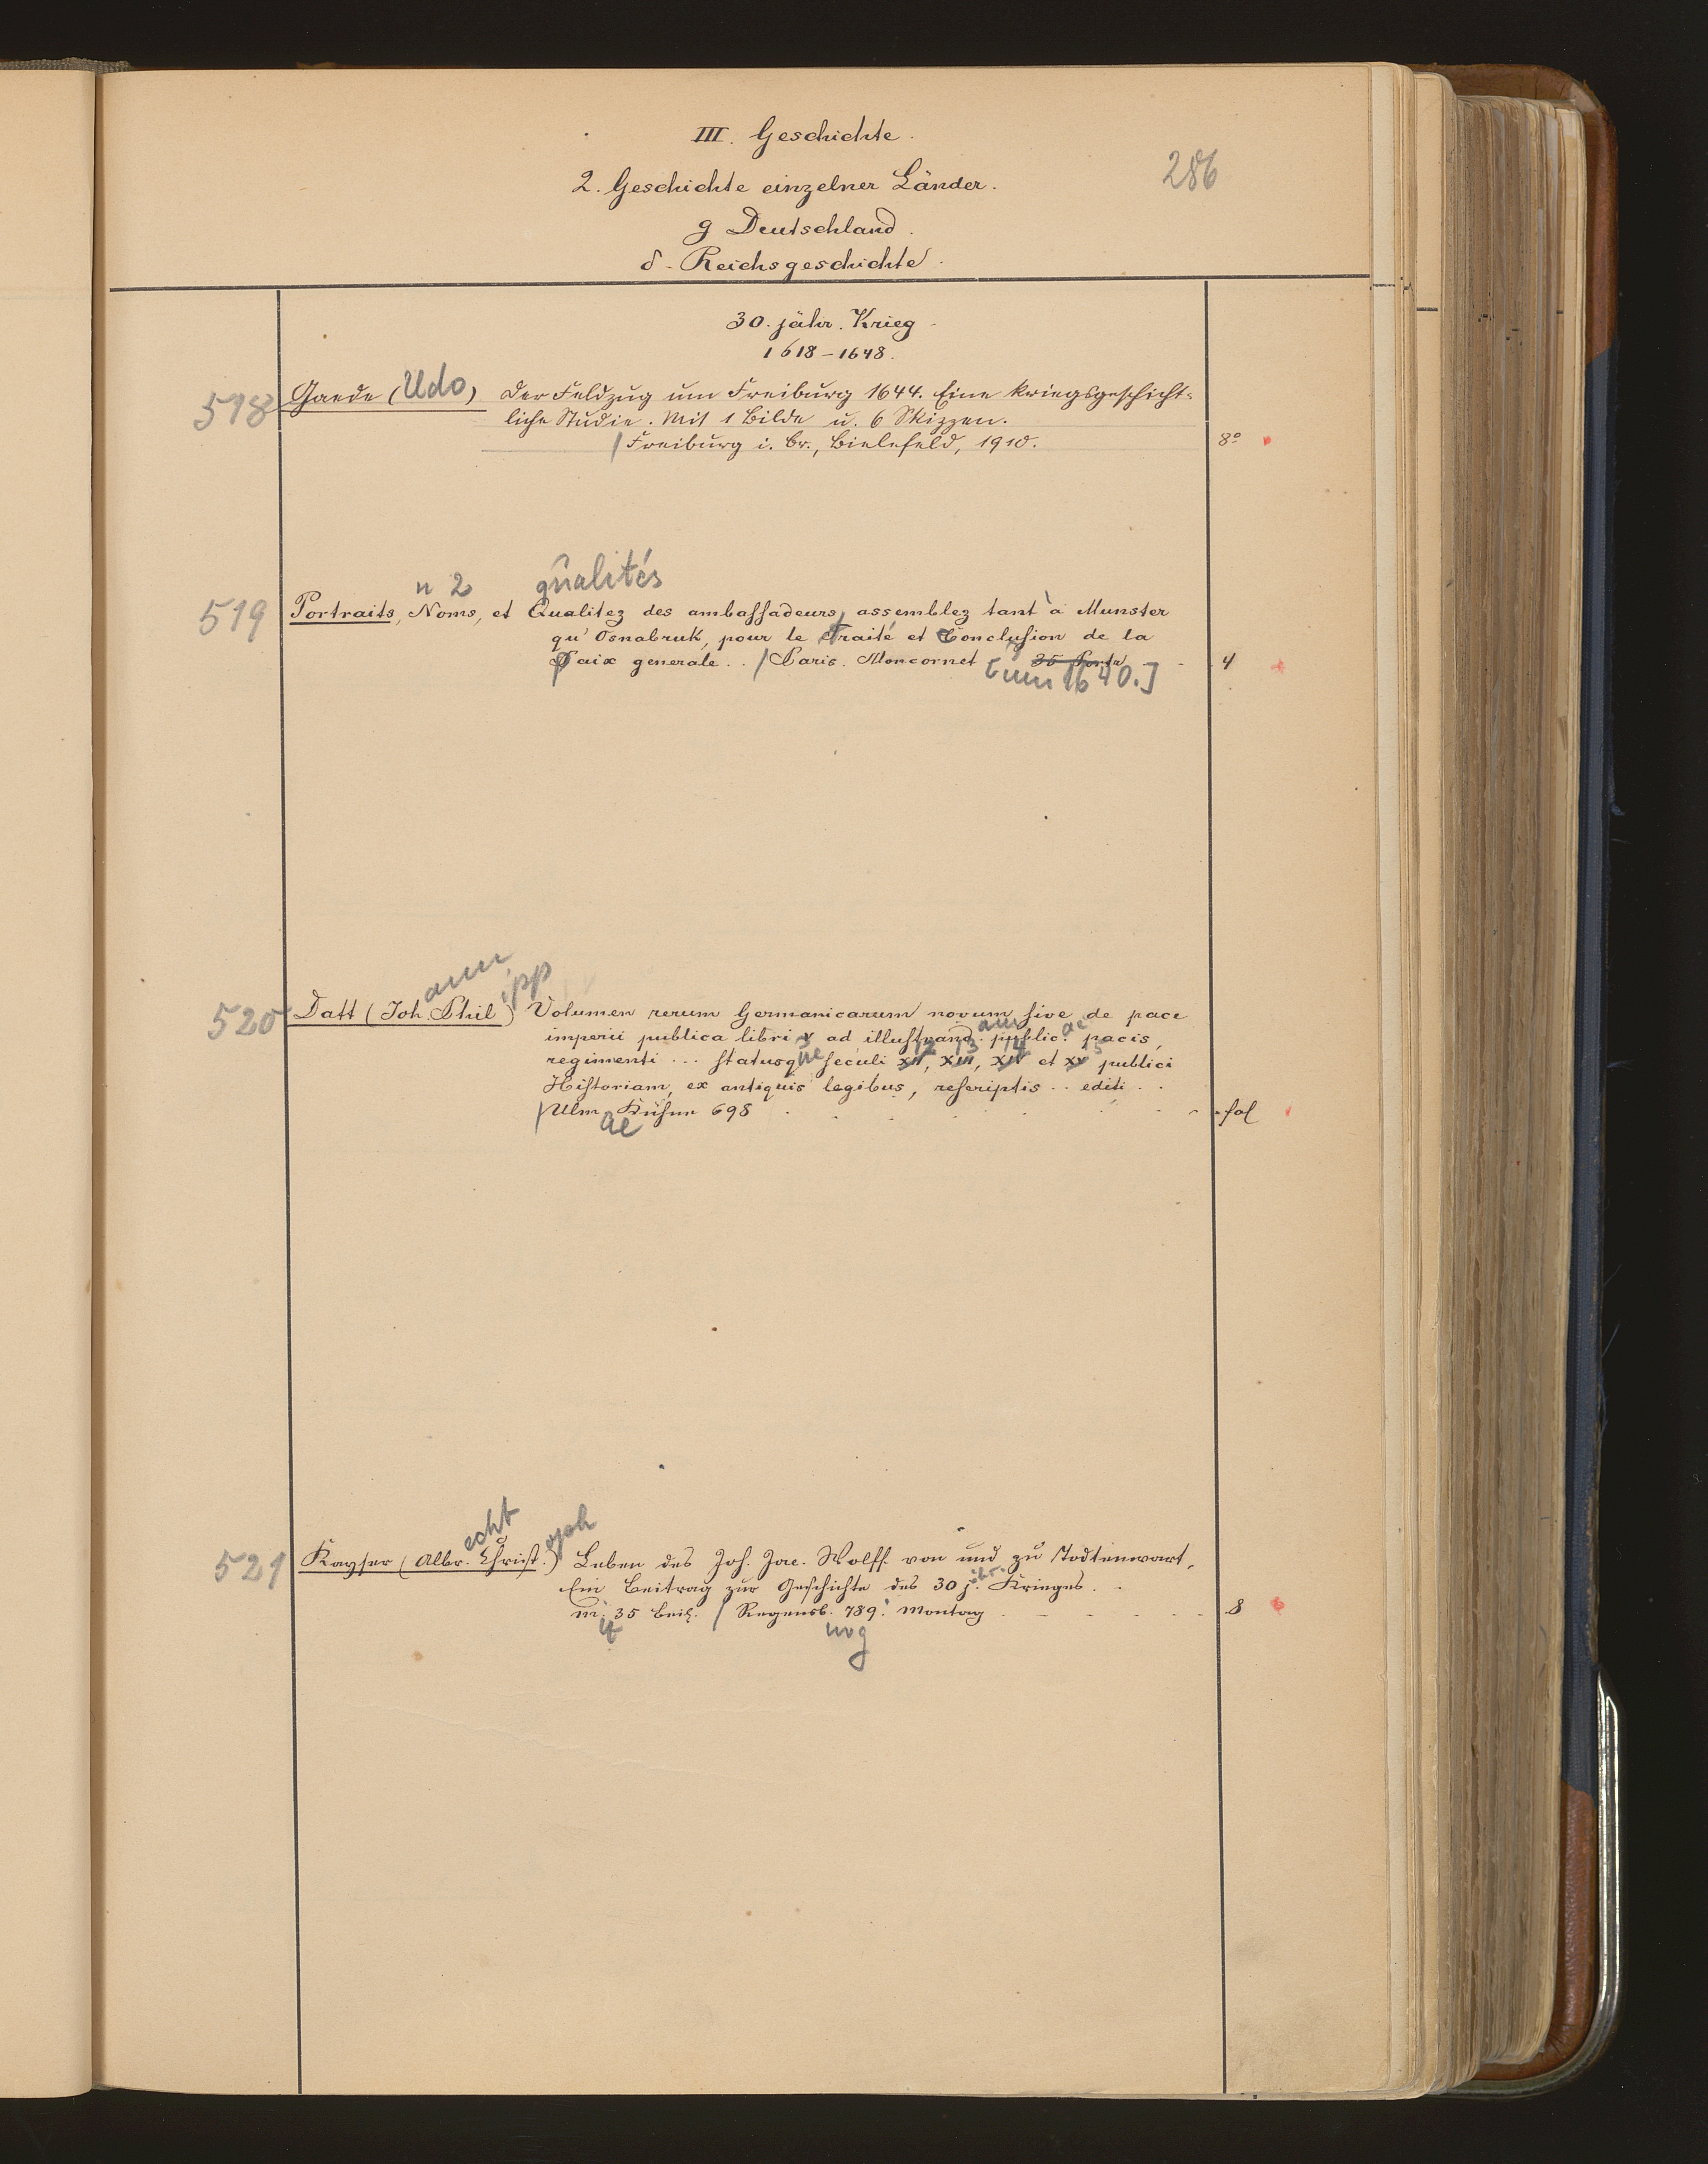 III. Geschichte.
286
2. Geschichte einzelner Länder.
g Deutschland.
δ. Reichsgeschichte.
30. jähr. Krieg
1618–1648.
518 Gaede (Udo) Der Feldzug um Freiburg 1644. Eine kriegsgeschicht-
liche Studie. Mit 1 Bilde u. 6 Skizzen.
/ Freiburg i. Br., Bielefeld, 1910. 8°
n 2 qualités
519 Portraits, Noms, et Qualitez des ambassadeurs, assemblez tant à Munster
qu'Osnabruk, pour le Traité et Conclusion de la
Paix generale . . / Paris. Moncornet 35 Portr 4
[um 1640.]
ann ipp
520 Datt (Joh. Phil) Volumen rerum Germanicarum novum sive de pace
am ae
imperii publica libri V ad illustrand. public. pacis,
ue 12 13 14 15
regimenti ... statusq seculi XII, XIII, XIV et XV publici
Historiam, ex antiquis legibus, rescriptis .. editi ..
/ Ulm, Kühne 698 fol
ae
echt oph
521 Kayser (Albr. Christ.) Leben des Joh. Jac. Wolff. von und zu Todtenwart,
Ein Beitrag zur Geschichte des 30 j. Krieges.
m. 35 Beil. / Regensb. 789. Montag 8
it urg